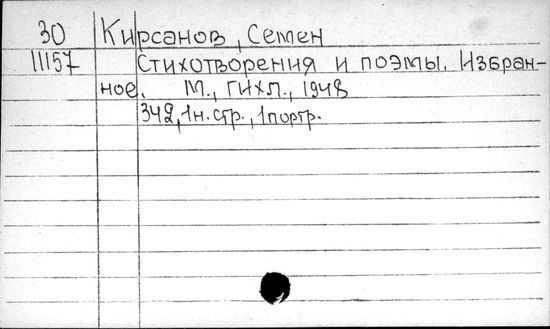 30 Кирсанов, Семен
11157 Стихотворения и поэмы. Избран-
ное. М., ГИХЛ., 1948
342, 1н. стр., 1портр.